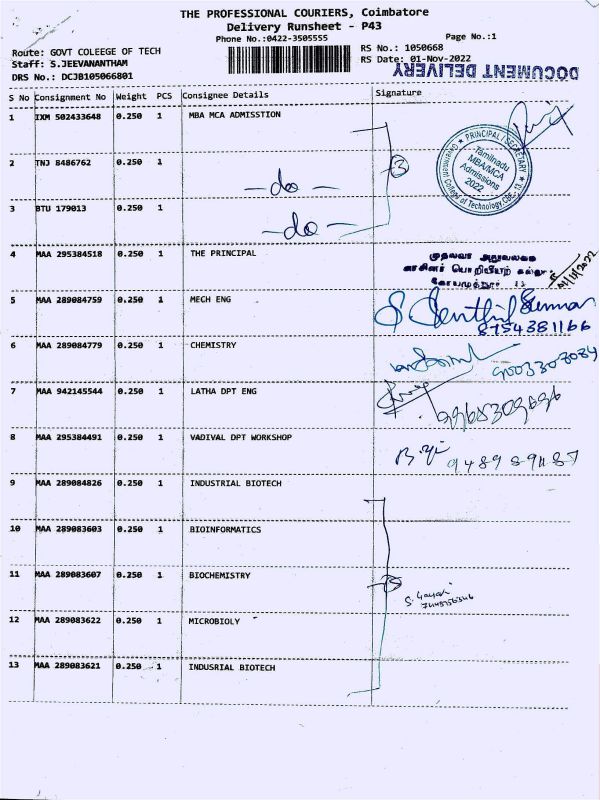 THE PROFESSIONAL COURIERS, Coimbatore
Delivery Runsheet - P43
Phone No.:0422-3505555
Page No.:1
Route: GOVT COLEEGE OF TECH
RS No.: 1050668
Staff: S.JEEVANANTHAM
RS Date: 01-Nov-2022
DRS No.: DCJB105066801
DOCUMENT DELIVERY
S No Consignment No Weight PCS Consignee Details Signature
1 IXM 502433648 0.250 1 MBA MCA ADMISSTION
PRINCIPAL / SECRETARY
Tamilnadu
MBA/MCA
Admissions
2022
College of Technology, CBE - 13
2 TNJ 8486762 0.250 1 -do-
3
3 BTU 179013 0.250 1 -do-
4 MAA 295384518 0.250 1 THE PRINCIPAL
முதல்வர் அலுவலகம்
அரசினர் பொறியியற் கல்லூரி
கோயமுத்தூர் 13
5 MAA 289084759 0.250 1 MECH ENG
S. Senthil Kumar
8754381166
6 MAA 289084779 0.250 1 CHEMISTRY
9003303034
7 MAA 942145544 0.250 1 LATHA DPT ENG
8 MAA 295384491 0.250 1 VADIVAL DPT WORKSHOP
9 MAA 289084826 0.250 1 INDUSTRIAL BIOTECH
10 MAA 289083603 0.250 1 BIOINFORMATICS
11 MAA 289083607 0.250 1 BIOCHEMISTRY
12 MAA 289083622 0.250 1 MICROBIOLY
13 MAA 289083621 0.250 1 INDUSRIAL BIOTECH